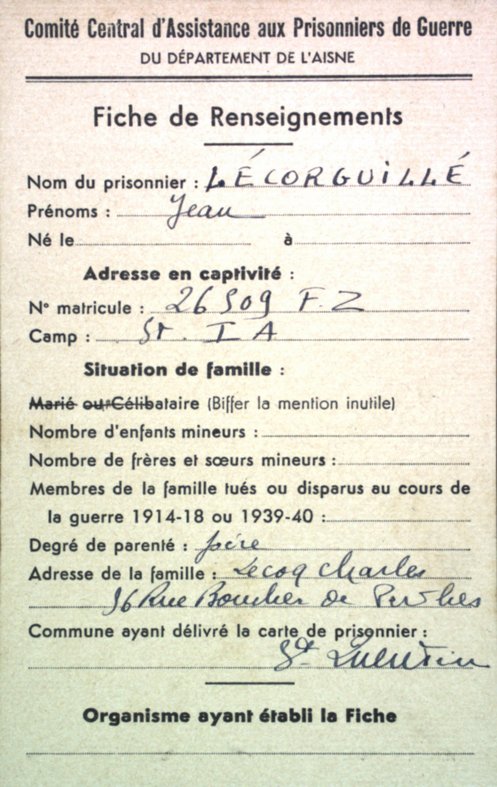 Comité Central d'Assistance aux Prisonniers de Guerre
DU DÉPARTEMENT DE L'AISNE
Fiche de Renseignements
Nom du prisonnier : LÉCORGUILLÉ
Prénoms : Jean
Né le à
Adresse en captivité :
N° matricule : 26509 F.Z
Camp : St. I A
Situation de famille :
Marié ou Célibataire (Biffer la mention inutile)
Nombre d'enfants mineurs :
Nombre de frères et sœurs mineurs :
Membres de la famille tués ou disparus au cours de
la guerre 1914-18 ou 1939-40 :
Degré de parenté : père
Adresse de la famille : Lecoq Charles
96 Rue Boucher de Perthes
Commune ayant délivré la carte de prisonnier :
St Quentin
Organisme ayant établi la Fiche